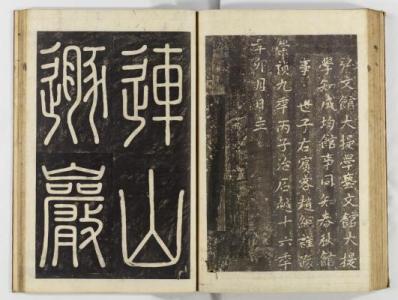 弘文館大提學藝文館大提
學知成均館事同知春秋館
事 世子右賓客趙絅謹識
崇禎九年丙子治石越十六年
辛卯月日立
連山
遯巖